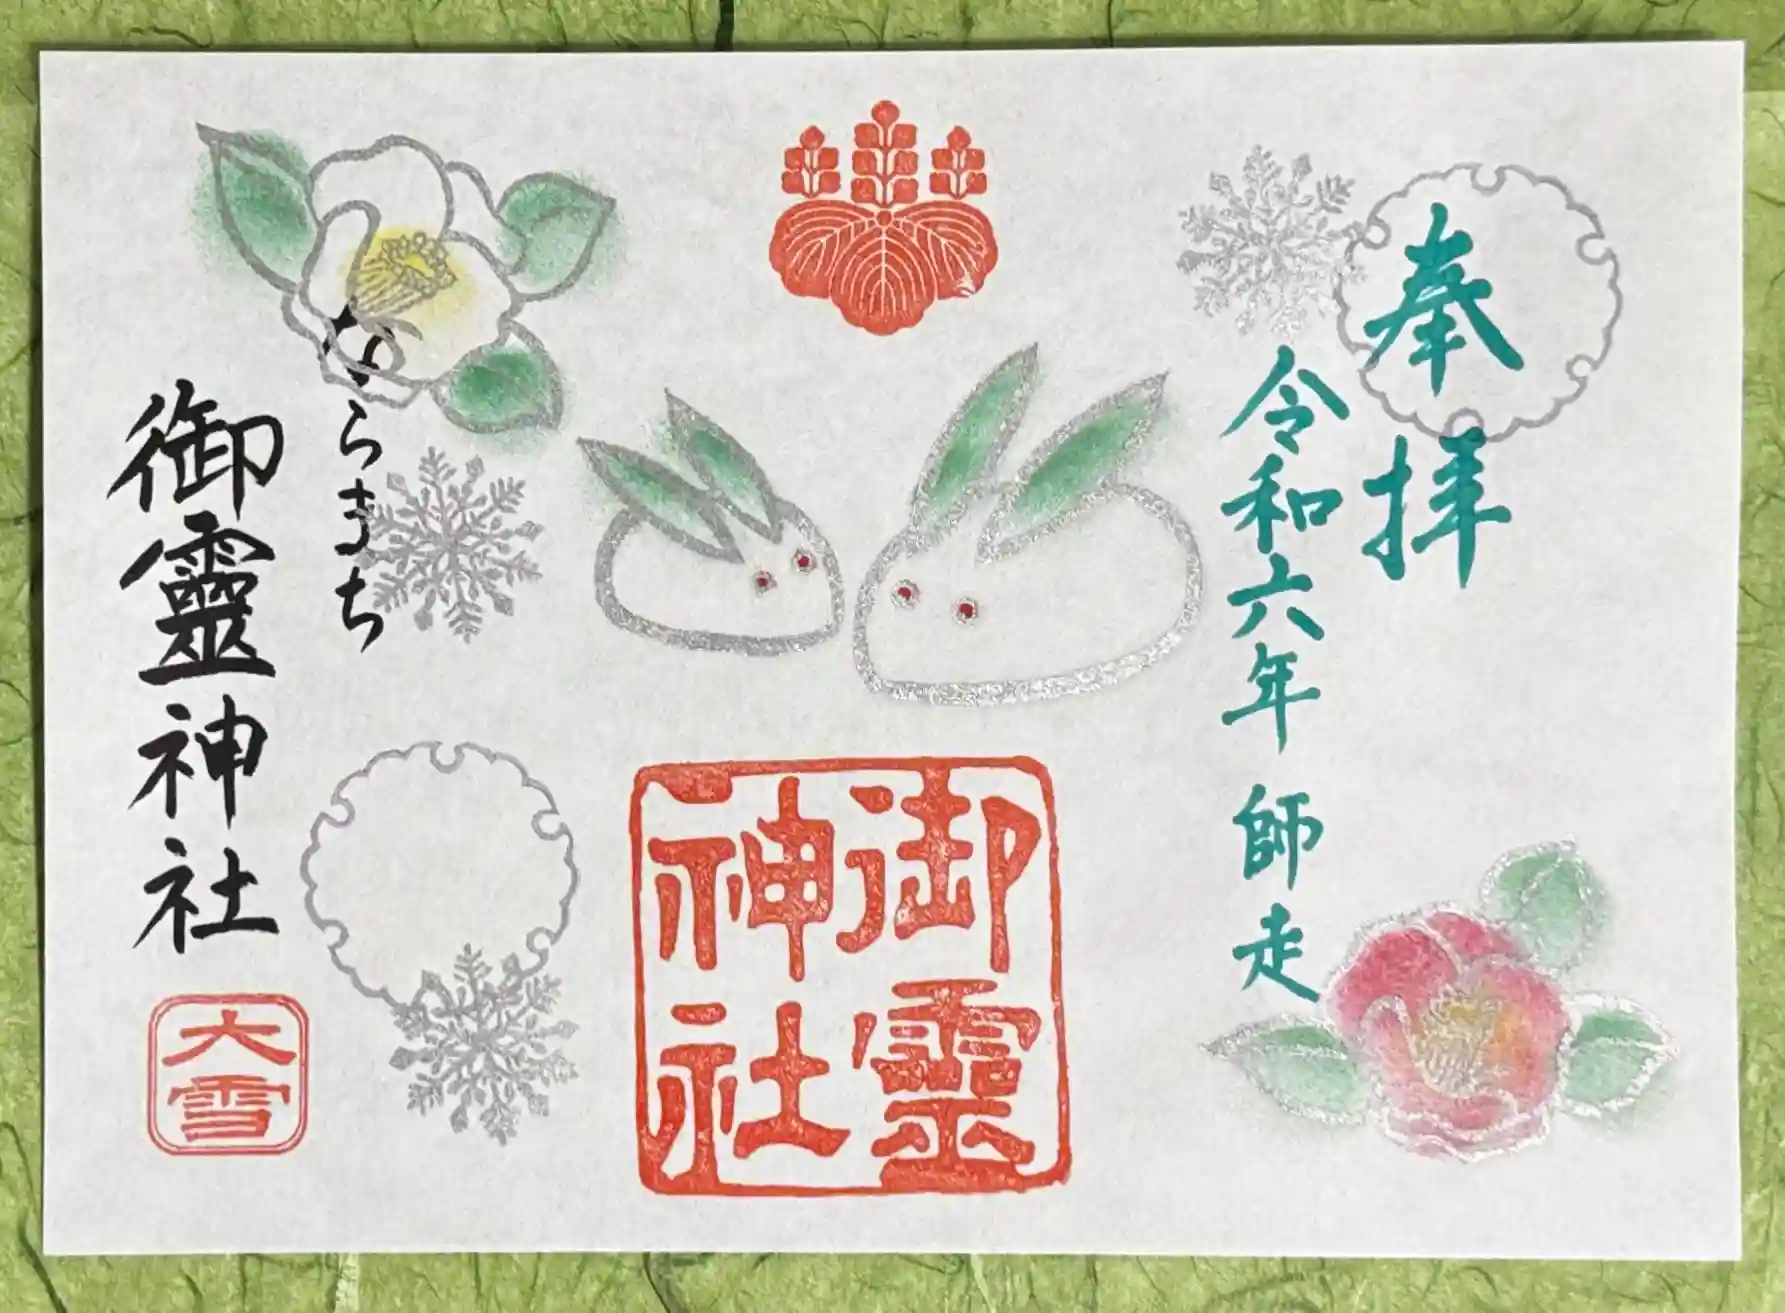 奉拝
令和六年 師走
御霊
神社
ならまち
御靈神社
大雪